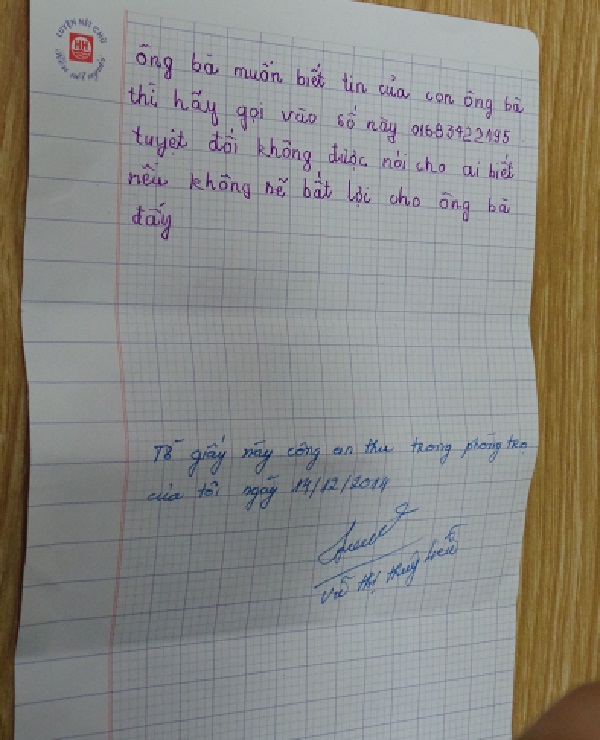 LUYỆN NÉT CHỮ
HH
ông bà muốn biết tin của con ông bà
thì hãy gọi vào số này 01683922195
tuyệt đối không được nói cho ai biết
nếu không sẽ bất lợi cho ông bà
đấy
Tờ giấy này công an thu trong phòng trọ
của tôi ngày 14/12/2014
Vũ thị thuý